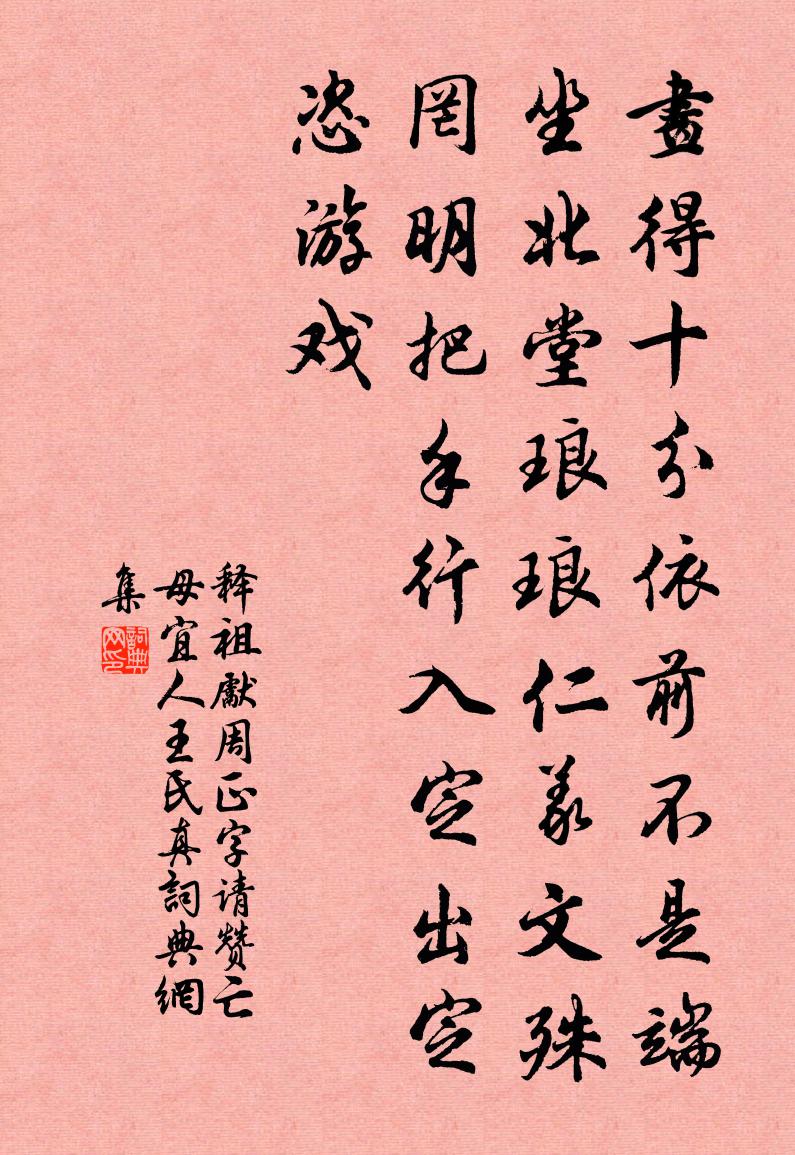 畫得十分依前不是端
坐北堂琅琅仁義文殊
罔明把手行入定出定
恣游戏
释祖獻周正字请赞亡
母宜人王氏真詞典網
集
詞典网印